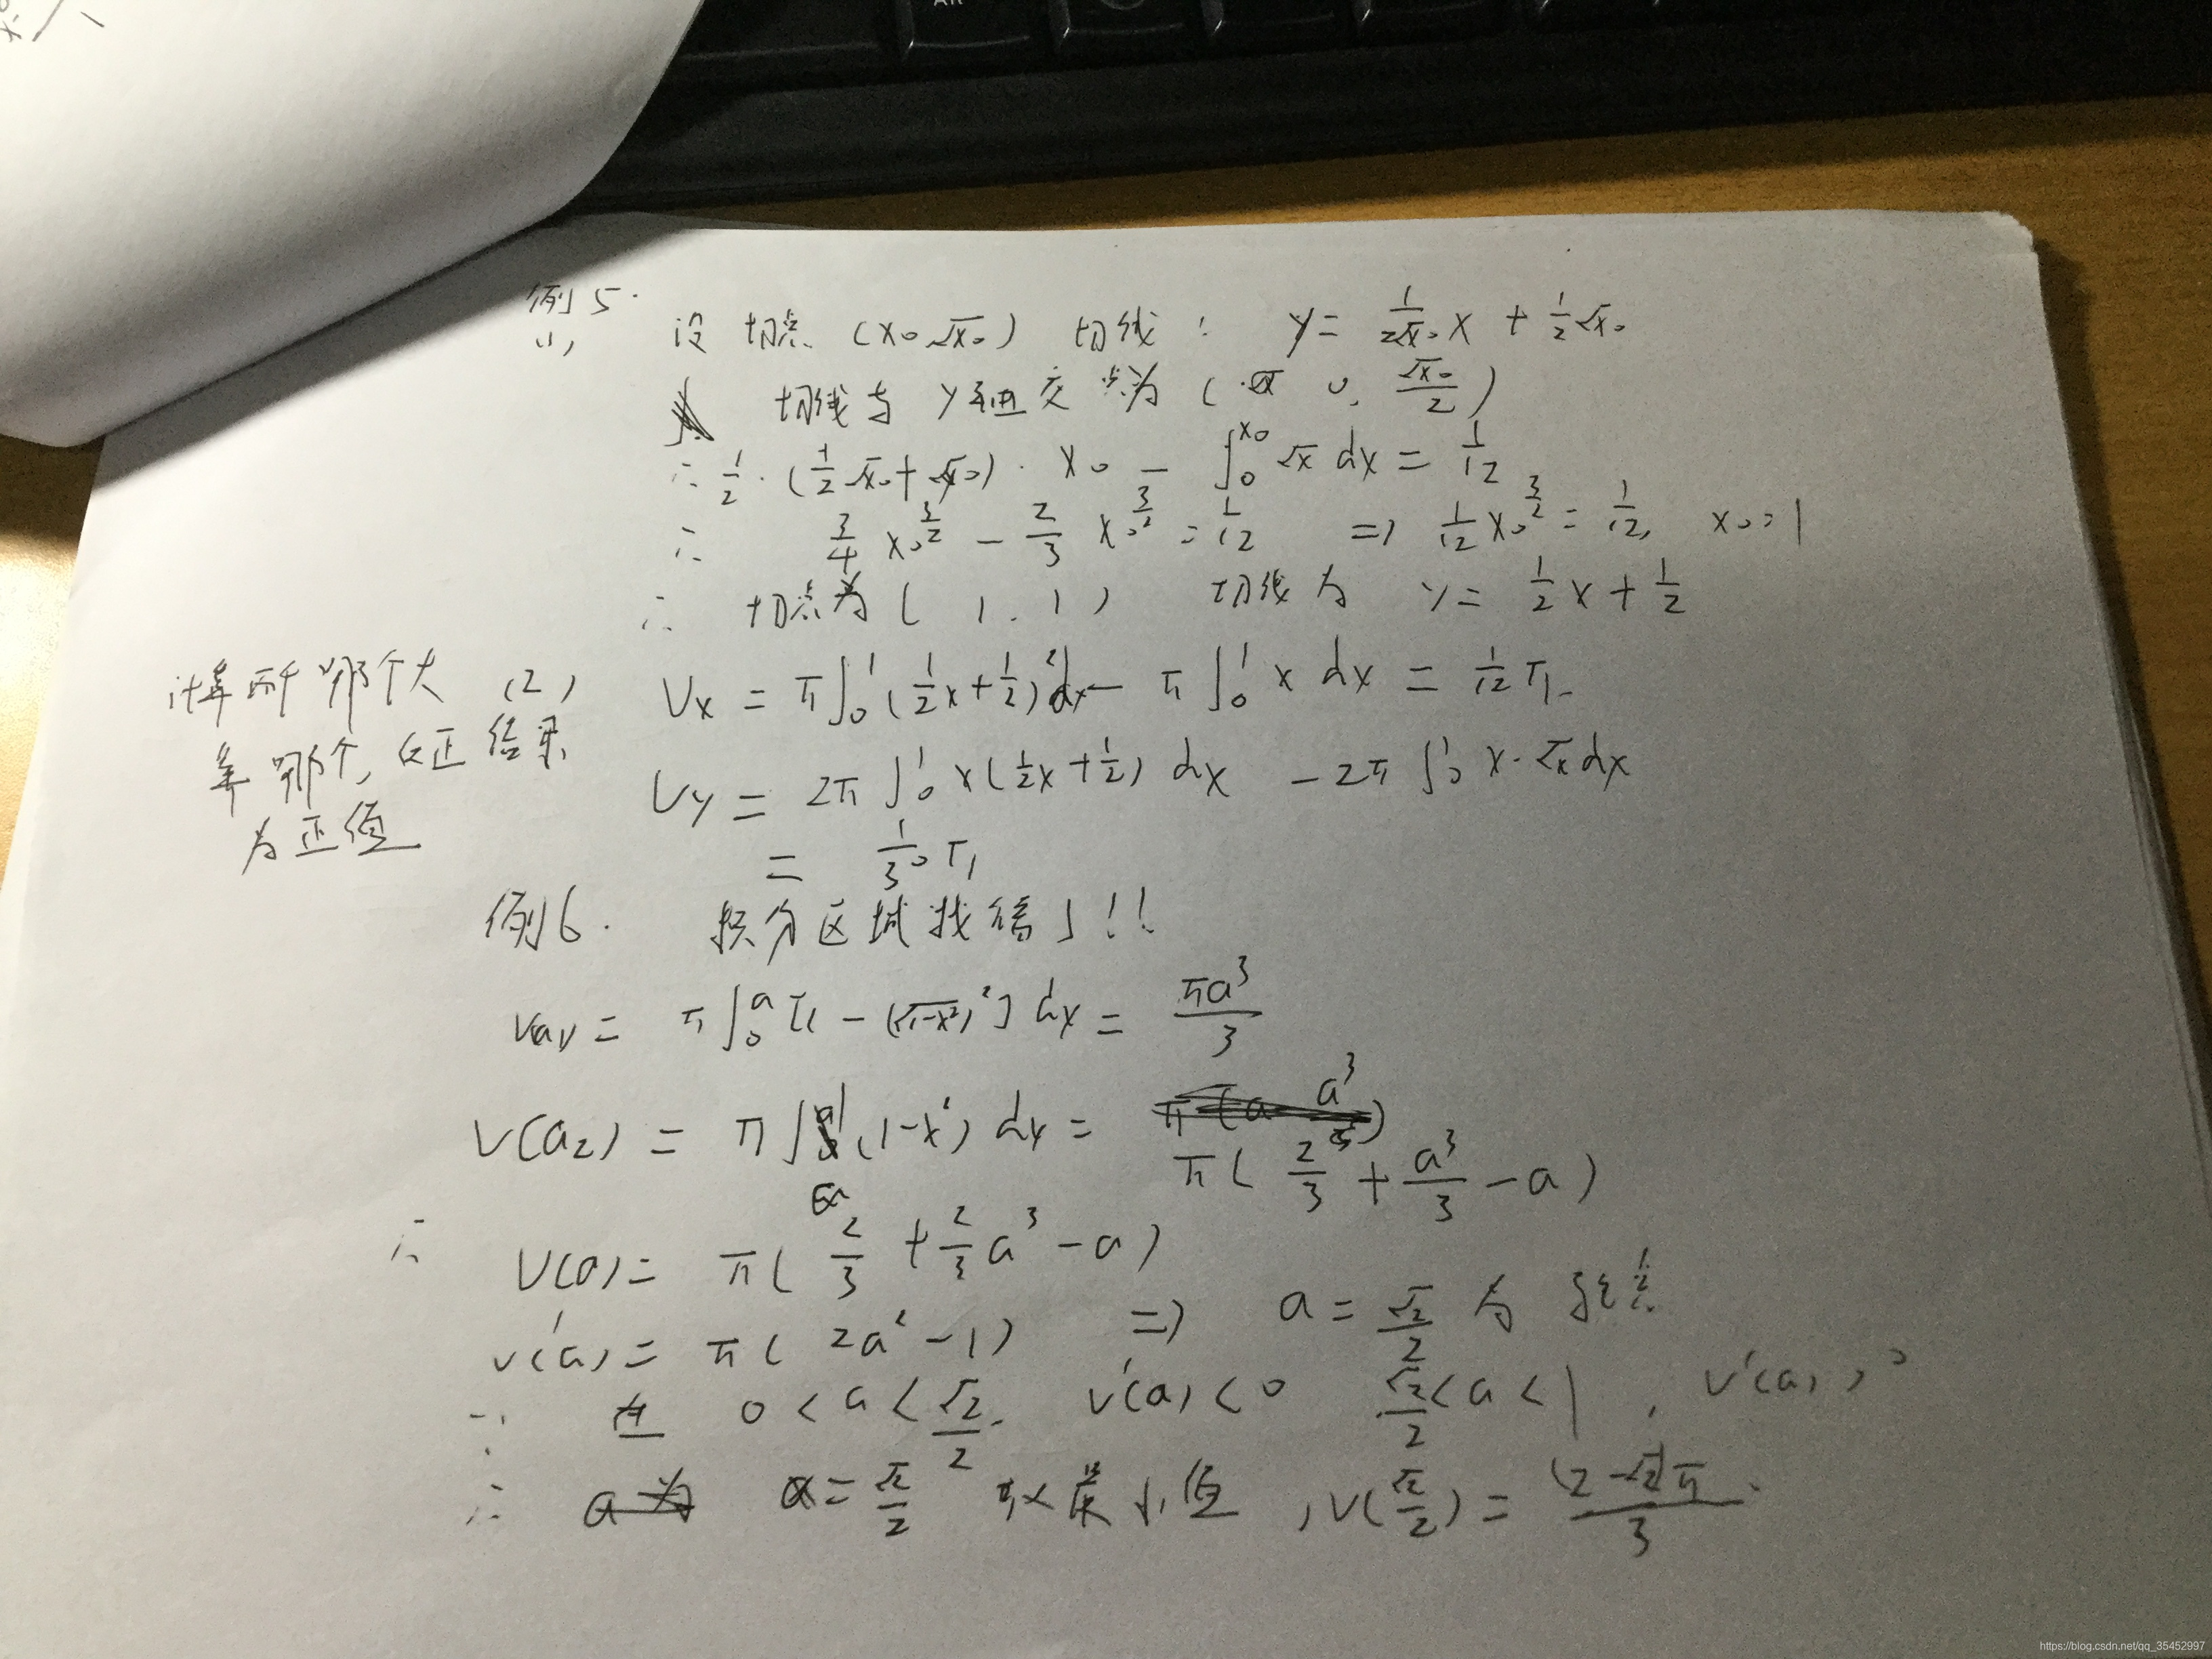 例5.
(1) 设 切点 (x₀ √x₀) 切线: y = \frac{1}{2√x₀} x + \frac{1}{2}√x₀
切线与 y轴 交点为 ( 0, \frac{√x₀}{2})
∴ \frac{1}{2}·(\frac{1}{2}√x₀+√x₀)·x₀ − ∫_0^{x₀} √x dx = \frac{1}{12}
∴ \frac{3}{4} x₀^{\frac{3}{2}} − \frac{2}{3} x₀^{\frac{3}{2}} = \frac{1}{12} ⇒ \frac{1}{12} x₀^{\frac{3}{2}} = \frac{1}{12}, x₀=1
∴ 切点为 (1.1) 切线为 y = \frac{1}{2}x + \frac{1}{2}
(2) Vx = π∫_0^1 (\frac{1}{2}x+\frac{1}{2})² dx − π∫_0^1 x dx = \frac{1}{12}π
Vy = 2π∫_0^1 x(\frac{1}{2}x+\frac{1}{2}) dx − 2π∫_0^1 x·√x dx
= \frac{1}{30}π
哪个大
哪个, 反正结果
为正值
例6. 积分区域找错了!!
V(a₁) = π∫_0^a [1 − (√(1−x²))²] dx = \frac{πa³}{3}
V(a₂) = π∫_a^1 (1−x²) dx =
π(\frac{2}{3} + \frac{a³}{3} − a)
∴ V(a) = π(\frac{2}{3} + \frac{2}{3}a³ − a)
V'(a) = π(2a² − 1) ⇒ a = \frac{√2}{2} 为 驻点
∵ 在 0 < a < \frac{√2}{2}, V'(a) < 0 \frac{√2}{2} < a < 1, V'(a) > 0
∴ a = \frac{√2}{2} 取最小值, V(\frac{√2}{2}) = \frac{(2−√2)π}{3}.
Alt
https://blog.csdn.net/qq_35452997